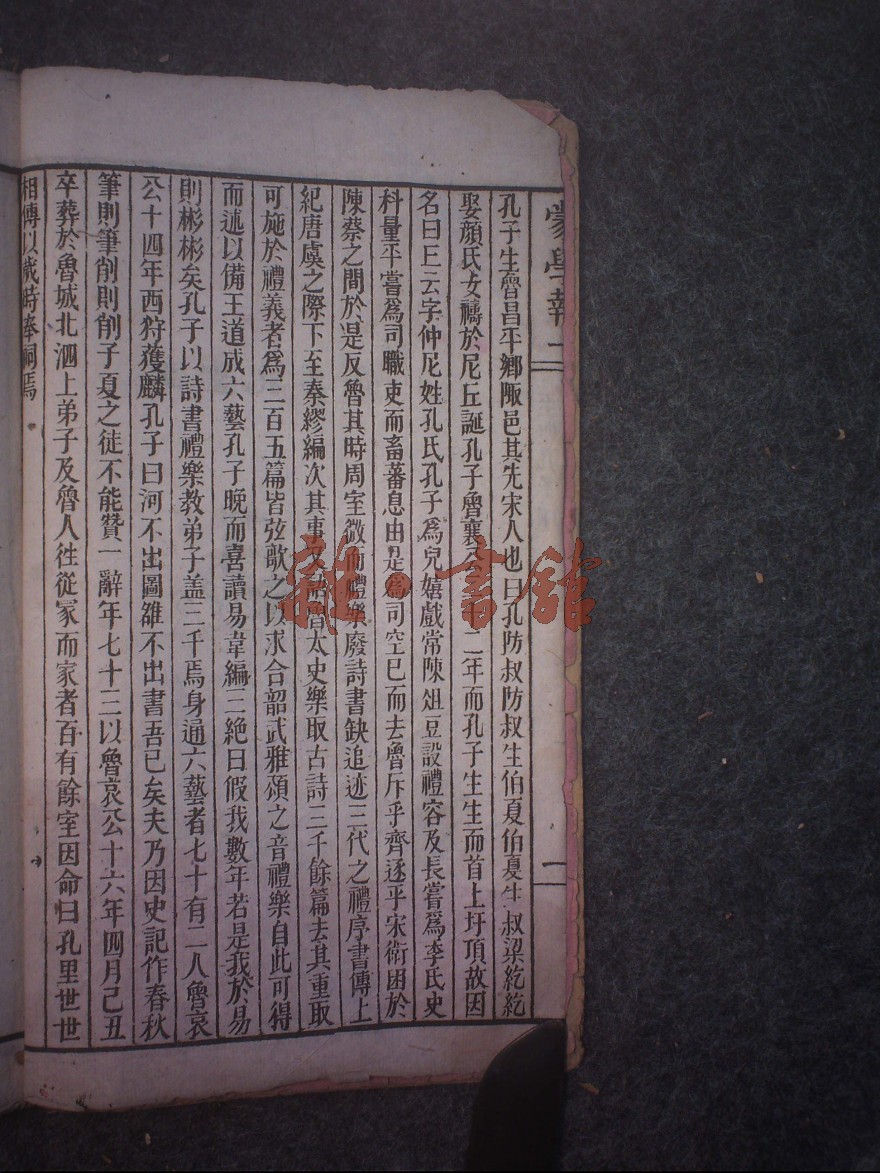 蒙學報二
一
孔子生魯昌平鄉陬邑其先宋人也曰孔防叔防叔生伯夏伯夏生叔梁紇紇
娶顏氏女禱於尼丘誕孔子魯襄公二十二年而孔子生生而首上圩頂故因
名曰丘云字仲尼姓孔氏孔子爲兒嬉戲常陳俎豆設禮容及長嘗爲季氏史
科量平嘗爲司職吏而畜蕃息由是爲司空已而去魯斥乎齊逐乎宋衛困於
陳蔡之間於是反魯其時周室微而禮樂廢詩書缺追迹三代之禮序書傳上
紀唐虞之際下至秦繆編次其事又語魯太史樂取古詩三千餘篇去其重取
可施於禮義者爲三百五篇皆弦歌之以求合韶武雅頌之音禮樂自此可得
而述以備王道成六藝孔子晚而喜讀易韋編三絕曰假我數年若是我於易
則彬彬矣孔子以詩書禮樂教弟子盖三千焉身通六藝者七十有二人魯哀
公十四年西狩獲麟孔子曰河不出圖雒不出書吾已矣夫乃因史記作春秋
筆則筆削則削子夏之徒不能贊一辭年七十三以魯哀公十六年四月己丑
卒葬於魯城北泗上弟子及魯人徃從冢而家者百有餘室因命曰孔里世世
相傳以歲時奉祠焉
雜·書館